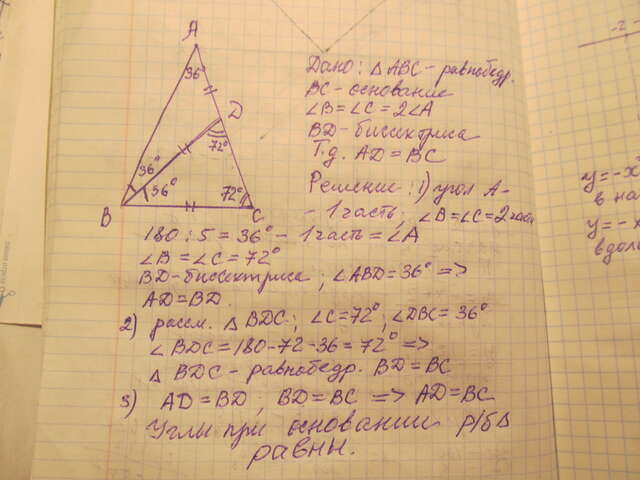 A
36°
D
72°
36°
36°
72°
B
C
Дано: △ ABC - равнобедр.
BC - основание
∠B = ∠C = 2∠A
BD - бисектриса
Т.д. AD = BC
Решение: 1) угол A -
- 1 часть; ∠B = ∠C = 2 части
180 : 5 = 36° - 1 часть = ∠A
∠B = ∠C = 72°
BD - биссектриса; ∠ABD = 36° =>
AD = BD.
2) рассм. △ BDC; ∠C = 72°; ∠DBC = 36°
∠BDC = 180 - 72 - 36 = 72° =>
△ BDC - равнобедр. BD = BC
3) AD = BD; BD = BC => AD = BC
Углы при основании р/б △
равны.
-2
y = -x
в на
y = -x
вдоль